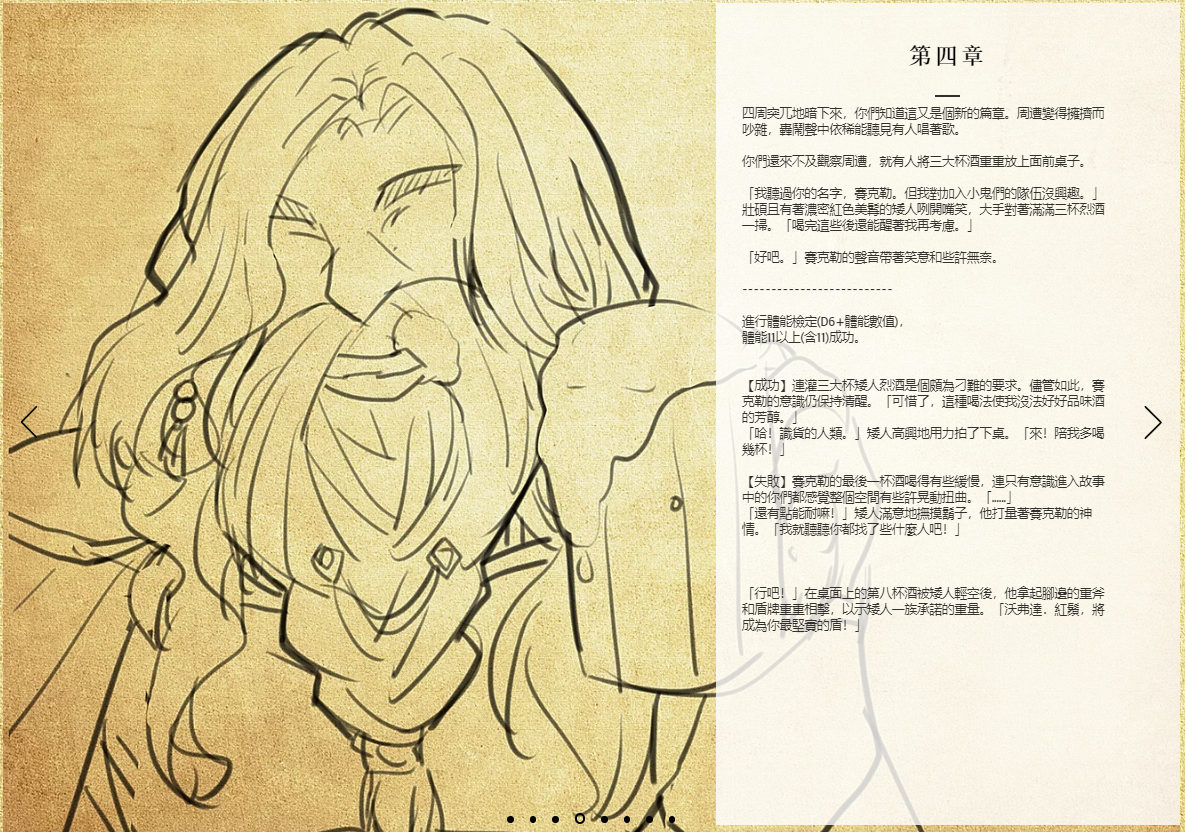 第四章
四周突兀地暗下來，你們知道這又是個新的篇章。周遭變得擁擠而
吵雜，轟鬧聲中依稀能聽見有人唱著歌。
你們還來不及觀察周遭，就有人將三大杯酒重重放上面前桌子。
「我聽過你的名字，賽克勒。但我對加入小鬼們的隊伍沒興趣。」
壯碩且有著濃密紅色美髯的矮人咧開嘴笑，大手對著滿滿三杯烈酒
一掃。「喝完這些後還能醒著我再考慮。」
「好吧。」賽克勒的聲音帶著笑意和些許無奈。
--------------------------
進行體能檢定(D6+體能數值)，
體能11以上(含11)成功。
【成功】連灌三大杯矮人烈酒是個頗為刁難的要求。儘管如此，賽
克勒的意識仍保持清醒。「可惜了，這種喝法使我沒法好好品味酒
的芳醇。」
「哈！識貨的人類。」矮人高興地用力拍了下桌。「來！陪我多喝
幾杯！」
【失敗】賽克勒的最後一杯酒喝得有些緩慢，連只有意識進入故事
中的你們都感覺整個空間有些許晃動扭曲。「……」
「還有點能耐嘛！」矮人滿意地撫摸鬍子，他打量著賽克勒的神
情。「我就聽聽你都找了些什麼人吧！」
「行吧！」在桌面上的第八杯酒被矮人輕空後，他拿起腳邊的重斧
和盾牌重重相擊，以示矮人一族承諾的重量。「沃弗達．紅鬚，將
成為你最堅實的盾！」